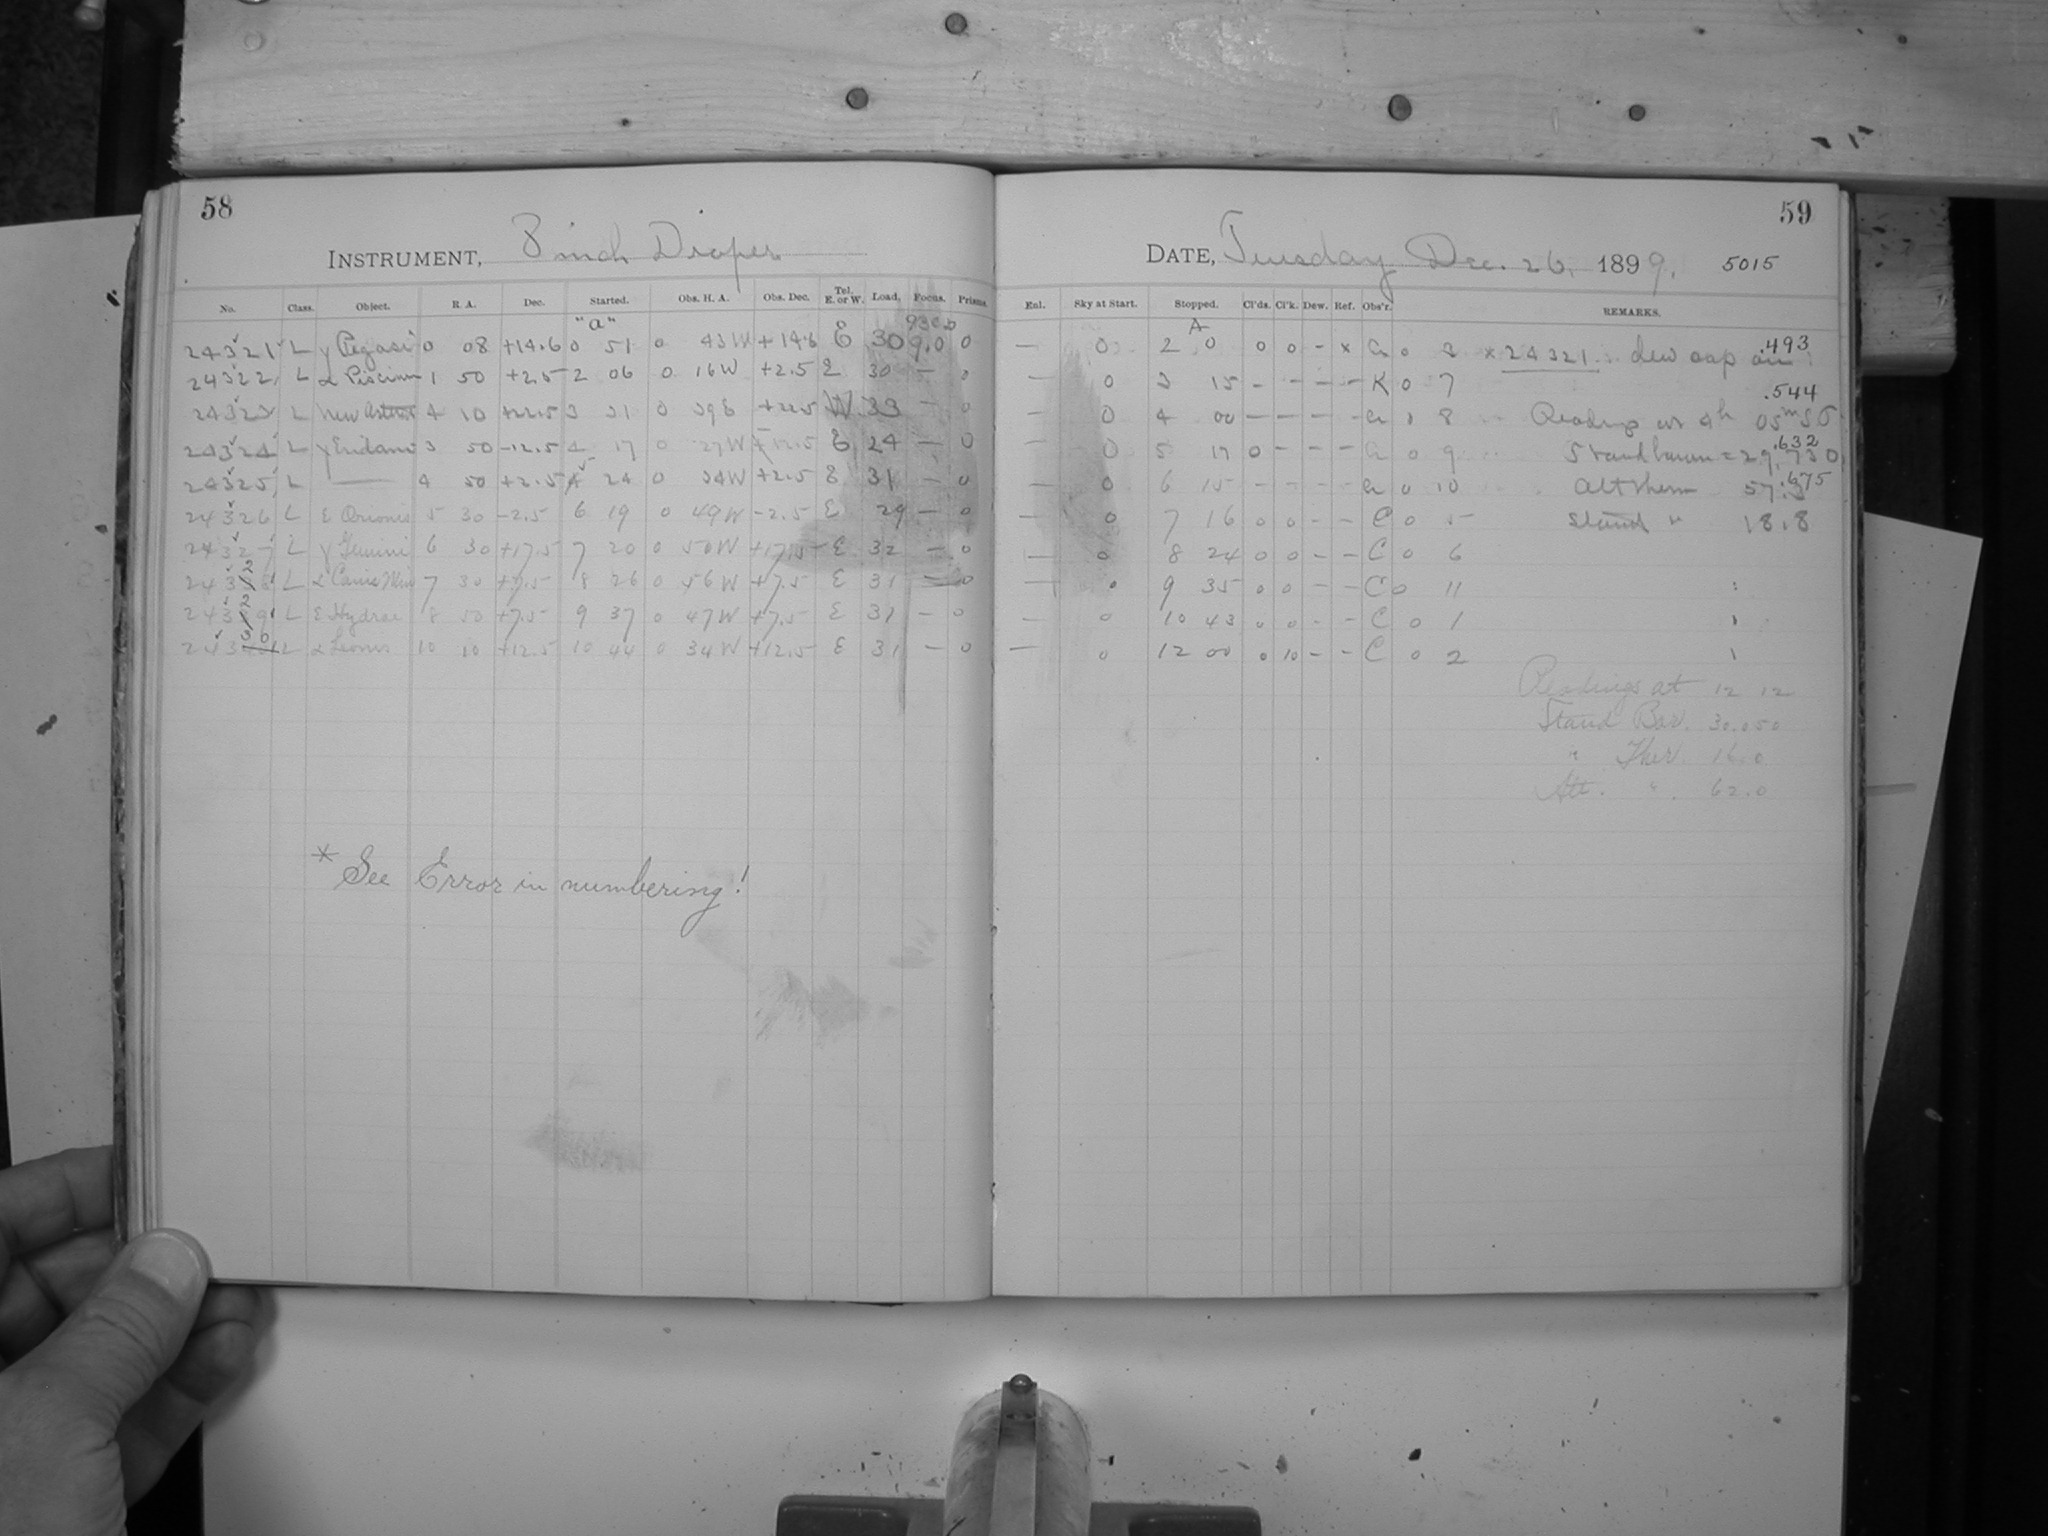 58
INSTRUMENT, 8 inch Draper
No. Class. Object. R. A. Dec. Started. Obs. H. A. Obs. Dec. Tel. E. or W. Load. Focus. Prisms.
"a"
24321 L γ Pegasi 0 08 +14.6 0 51 0 43 W +14.6 E 30 9.0 0
24322 L α Piscium 1 50 +2.5 2 06 0 16 W +2.5 E 30 — 0
24323 L New 4 10 +22.5 3 31 0 39 E +22.5 W 33 — 0
24324 L γ Eridani 3 50 -12.5 4 17 0 27 W -12.5 E 24 — 0
24325 L —— 4 50 +2.5 24 0 34 W +2.5 E 31 — 0
24326 L ε Orionis 5 30 -2.5 6 19 0 49 W -2.5 E 29 — 0
24327 L γ Gemini 6 30 +17.5 7 20 0 50 W +17.5 E 32 — 0
24328 L α Canis Min 7 30 +7.5 8 26 0 56 W +7.5 E 31 — 0
24329 L ε Hydrae 8 50 +7.5 9 37 0 47 W +7.5 E 31 — 0
24330 L α Leonis 10 10 +12.5 10 44 0 34 W +12.5 E 31 — 0
* See Error in numbering!
59
DATE, Tuesday Dec. 26, 1899. 5015
Enl. Sky at Start. Stopped. Cl'ds. Cl'k. Dew. Ref. Obs'r. REMARKS.
A
— 0 2 0 0 0 - x 0 3 x 24321 : dew cap on .493
— 0 3 15 - - - - K 0 7 .544
0 4 00 - - - - 0 8 Readings at 4h 05m
— 0 5 17 0 - - - 0 9 Stand barom = 29.730 .632
— 0 6 15 - - - - 0 10 Att therm 57.3 .675
— 0 7 16 0 0 - - C 0 5 Stand " 18.8
— 0 8 24 0 0 - - C 0 6
— 0 9 35 0 0 - - C 0 11
— 0 10 43 0 0 - - C 0 1
— 0 12 00 0 10 - - C 0 2
Readings at 12 12
Stand Bar. 30.050
" Ther. 16.0
Att. " 62.0